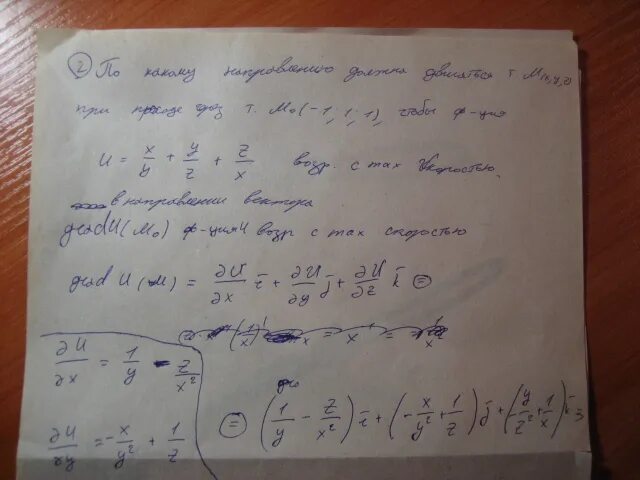 ② По какому направлению должна двигаться т. M(x,y,z)
при проходе через т. M₀(-1; 1; 1), чтобы ф-ция
U = x/y + y/z + z/x возр. с max скоростью.
в направлении вектора
grad U(M₀) ф-ция U возр с max скоростью
grad U(M) = ∂U/∂x i̅ + ∂U/∂y j̅ + ∂U/∂z k̅ ⊜
∂U/∂x = 1/y - z/x²
∂U/xy = -x/y² + 1/z
⊜ (1/y - z/x²) i̅ + (-x/y² + 1/z) j̅ + (-y/z² + 1/x) k̅ =